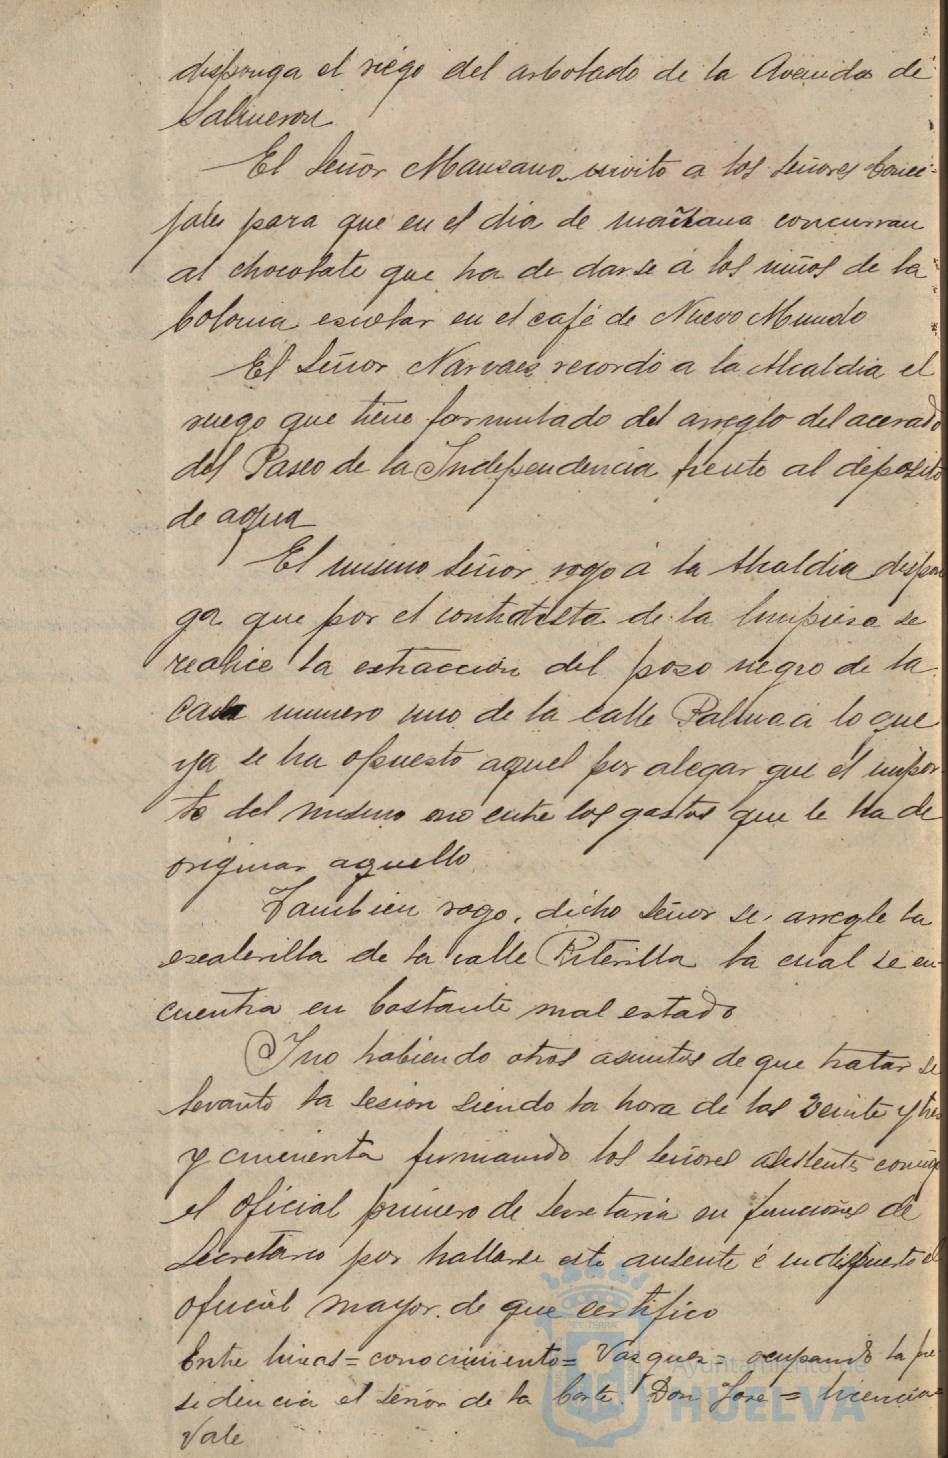 disponga el riego del arbolado de la Avenida de
Salmeron
El Señor Manzano invito a los señores Conce-
jales para que en el dia de mañana concurran
al chocolate que ha de darse á los niños de la
Colonia escolar en el café de Nuevo Mundo
El Señor Narvaez recordó a la Alcaldia el
ruego que tiene formulado del arreglo del acerado
del Paseo de la Independencia frente al deposito
de agua
El mismo Señor rogo á la Alcaldia dispon
ga que por el contratista de la limpieza se
realice la extracción del pozo negro de la
casa numero uno de la calle Palma á lo que
ya se ha opuesto aquel por alegar que el impor
te del mismo no cubre los gastos que le ha de
originar aquello
Tambien rogo dicho señor se arregle la
escalerilla de la calle Piterilla la cual se en-
cuentra en bastante mal estado
Y no habiendo otros asuntos de que tratar se
levanto la sesion siendo la hora de las veinte y tres
y cincuenta firmando los señores asistentes conmigo
el oficial primero de Secretaria en funciones de
Secretario por hallarse este ausente é indispuesto el
oficial mayor de que certifico
Entre lineas = conocimiento = Vazquez = ocupando la pre
sidencia el señor de la Corte Don Jose = licencia =
Vale
Ayuntamiento de
HUELVA